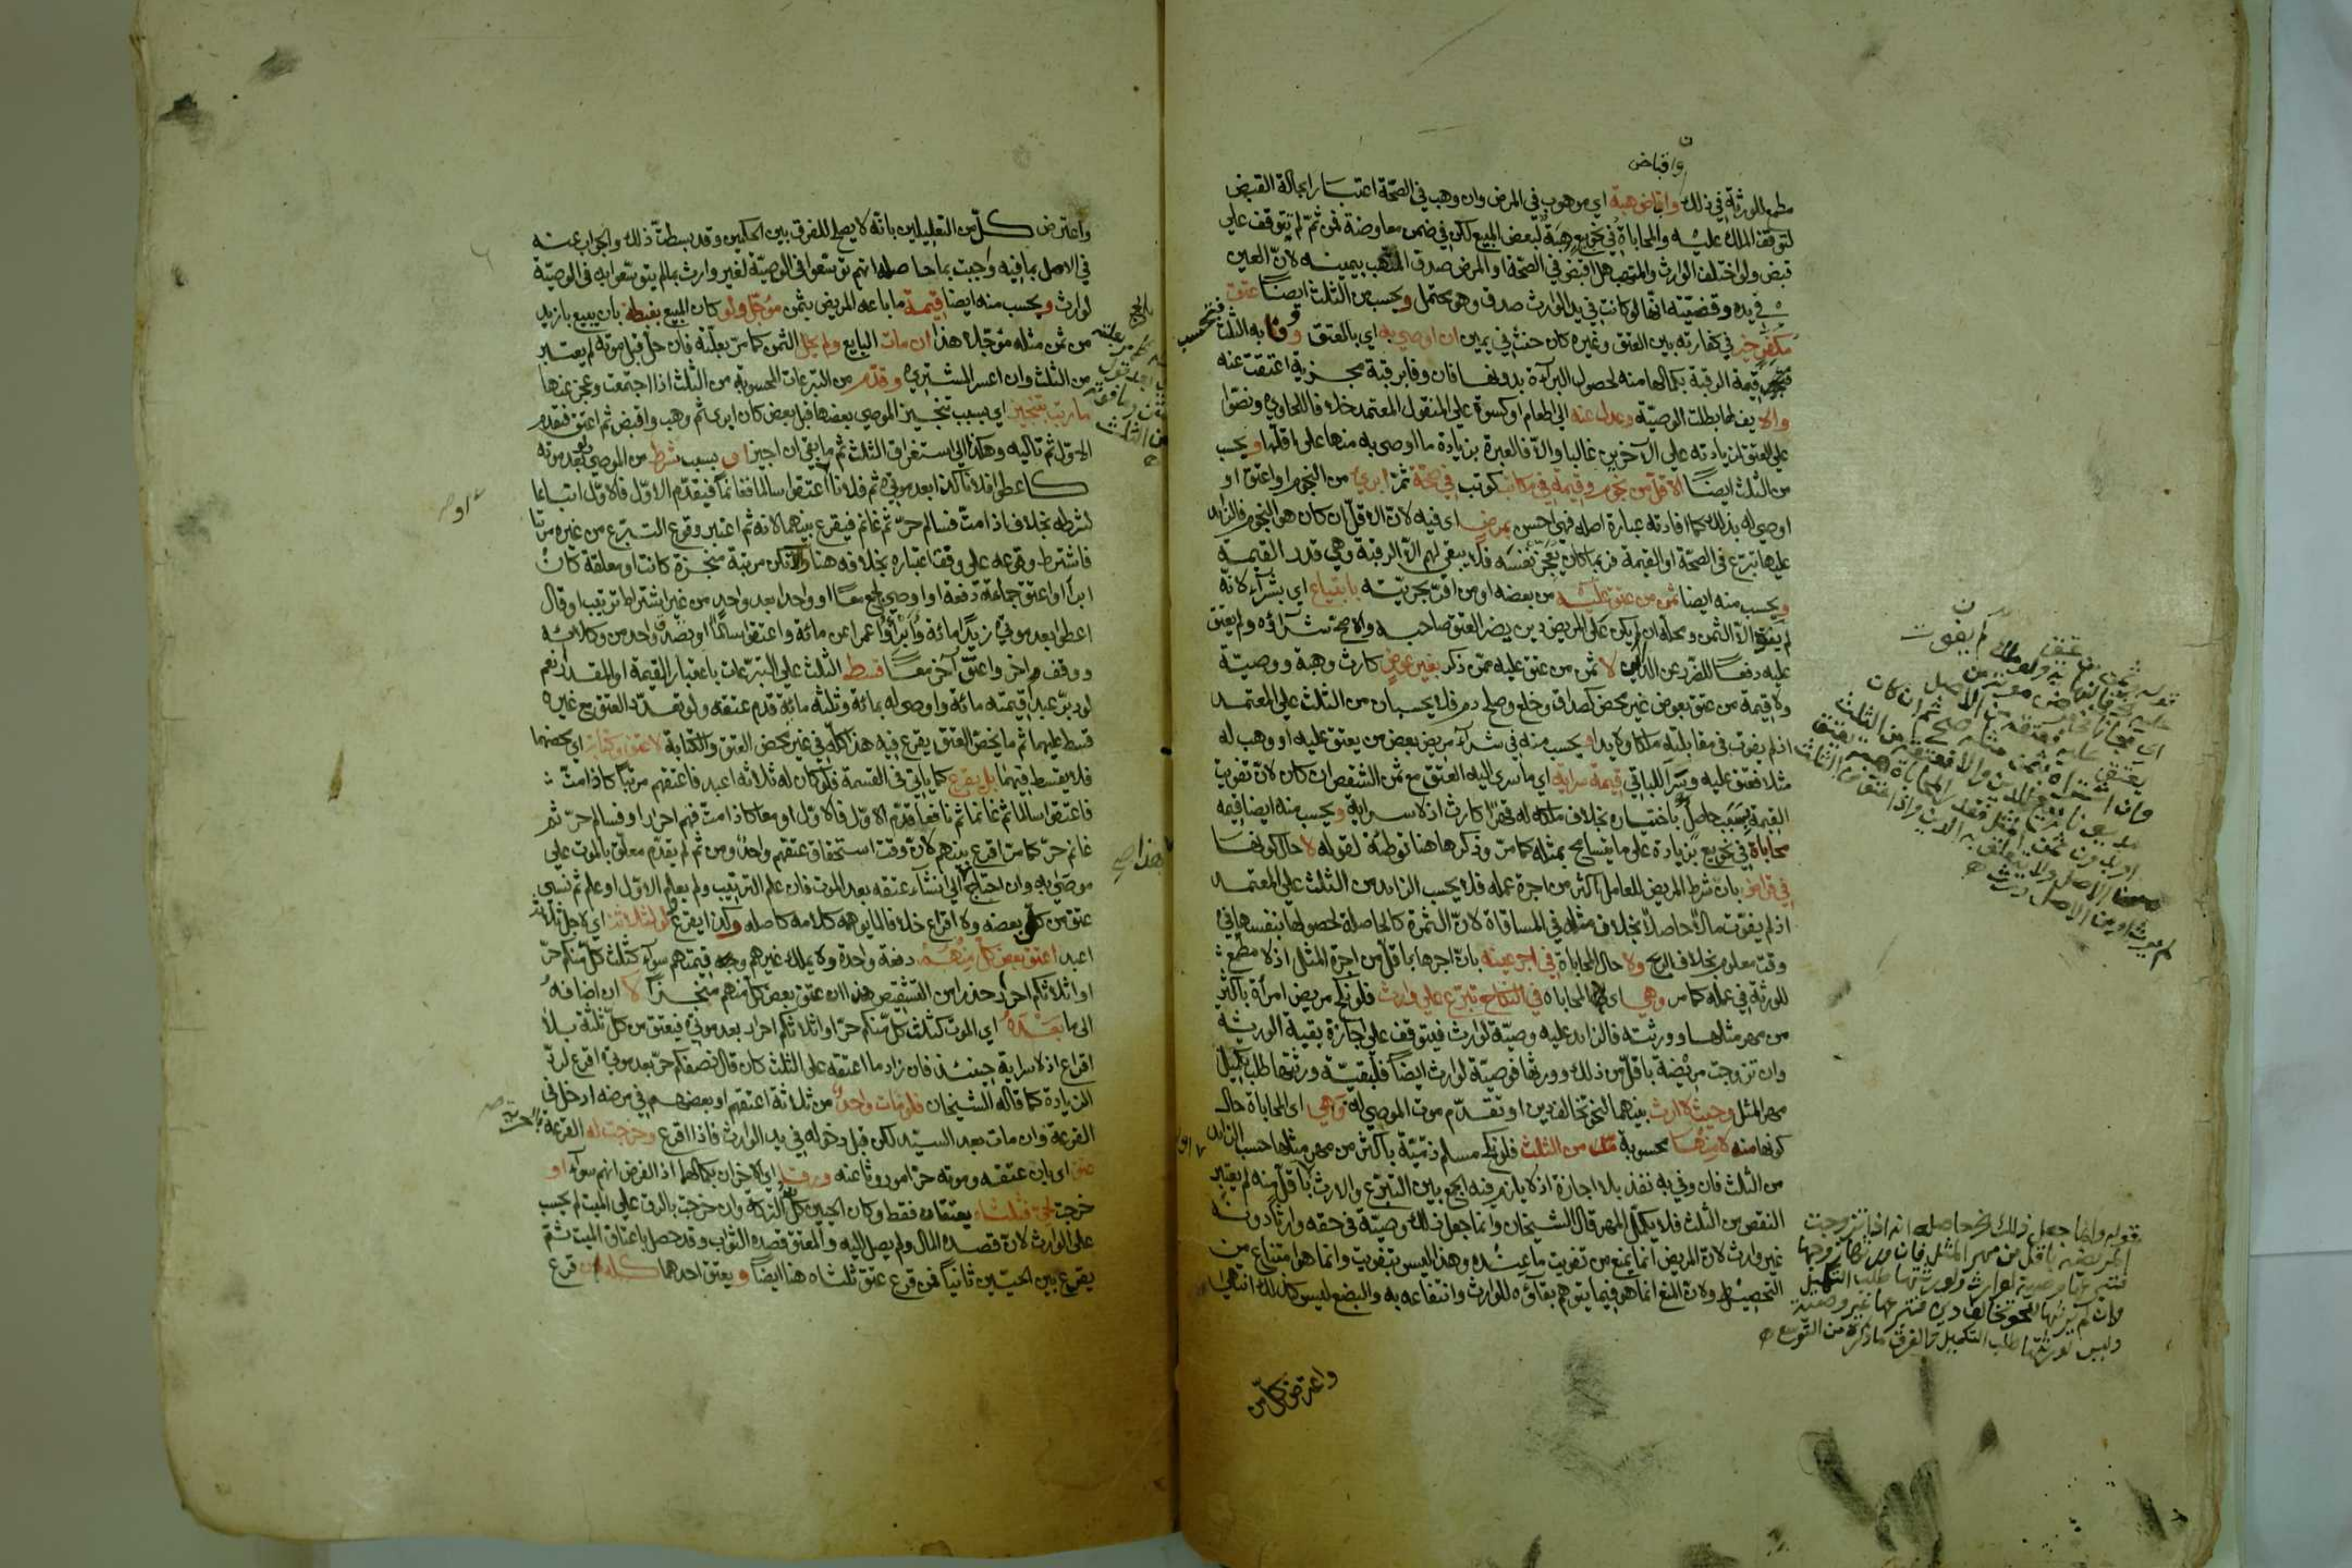 واقباض
مطمع للورثة في ذلك واقباض هبة اي موهوب في المرض وان وهب في الصحة اعتبارا بحالة القبض
لتوقف الملك عليه والمحاباة في نحو بيع هبة لبعض المبيع لكن في ضمن معاوضة فمن ثم لم تتوقف على
قبض ولو اختلف الوارث والمتهب هل اقبض في الصحة او المرض صدق المتهب بيمينه لان العين
في يده وقضيته انها لو كانت في يد الوارث صدق وهو محتمل ويحسب من الثلث ايضا عتق
مكفر خير في كفارته بين العتق وغيره كان حنث في يمين ان اوصي به اي بالعتق ووفا به الثلث
فتحسب
قيمة الرقبة بكمالها منه لحصول البراءة بدونها فان وفا برقبة مجزية اعتقت عنه
والا يف لها بطلت الوصية وعدل عنه الى اطعام او كسوة على المنقول المعتمد خلافا للحاوي ونصوا
على العتق لزيادته على الآخرين غالبا والا فالعبرة بزيادة ما اوصى به منها على اقلها ويحسب
من الثلث ايضا الاقل من نجوم وقيمة في مكاتب كوتب في صحة ثم ابرئ من النجوم او اعتق او
اوصي له بذلك كما افادته عبارة اصله فهي احسن بمرض اي فيه لان الاقل ان كان هو النجوم فالزائد
عليها تبرع في الصحة او القيمة فربما كان يعجز نفسه فلا يبقى لهم الا الرقبة وهي قدر القيمة
ويحسب منه ايضا ثمن من عتق عليه من بعضه او من اقر بحريته بابتياع اي بشراء لانه
لم يفوت الا الثمن ومحله ان لم يكن على المريض دين يضر العتق صاحبه والا صح شراؤه ولم يعتق
عليه دفعا للضرر عن الدائن لا ثمن من عتق عليه ممن ذكر بغير عوض كارث وهبة ووصية
ولا قيمة من عتق بعوض غير محض كصداق وخلع وصلح دم فلا يحسبان من الثلث على المعتمد
اذ لم يفوت في مقابلته ملكا ولا يدا ويحسب منه في شراء مريض بعض من يعتق عليه او وهب له
مثلا فعتق عليه وسرى للباقي قيمة سراية اي ما سرى اليه العتق مع ثمن الشقص ان كان لان تفويت
القيمة بسبب حاصل باختياره بخلاف ملكه له قهرا كارث اذ لا سراية ويحسب منه ايضا قيمة
محاباة في نحو بيع بزيادة على ما يتسامح بمثله كما مر وذكرها هنا توطئة لقوله لا حال كونها
في قراض بان شرط المريض للعامل اكثر من اجرة عمله فلا يحسب الزائد من الثلث على المعتمد
اذ لم يفوت مالا حاصلا بخلاف مثله في المساقاة لان الثمرة كالحاصلة لحصولها بنفسها في
وقت معلوم بخلاف الربح ولا حال المحاباة في اجر عينه بان اجرها باقل من اجرة المثل اذ لا مطمع
للورثة في عمله كما مر وهي اي المحاباة في النكاح تبرع على وارث فلو نكح مريض امراة باكثر
من مهر مثلها وورثته فالزائد عليه وصية لوارث فيتوقف على اجازة بقية الورثة
وان تزوجت مريضة باقل من ذلك وورثها فوصية لوارث ايضا فلبقية ورثتها طلب تكميل
مهر المثل وحيث لا ارث بينهما لنحو تخالف دين او تقدم موت الموصى له فهي اي المحاباة حال
كونها منه لا منها محسوبة من الثلث فلو نكح مسلم ذمية باكثر من مهر مثلها حسب الزائد
من الثلث فان وفي به نفذ بلا اجازة اذ لا يلزم فيه الجمع بين التبرع والارث باقل منه لم يعتبر
النقص من الثلث فلا يكمل المهر قال الشيخان وانما جعل ذلك وصية في حقه وارثا دونه
غير وارث لان المريض انما يمنع من تفويت ما عنده وهذا ليس بتفويت وانما هو امتناع من
التحصيل ولان المنع انما هو فيما يتوهم بقاؤه للوارث وانتفاعه به والبضع ليس كذلك انتهى
واعترض كل من
قوله وانما جعل ذلك الخ حاصله انه اذا تزوجت
المريضة باقل من مهر المثل فان ورثها زوجها
فتبرعها وصية لوارث ولورثتها طلب التكميل
وان لم يرثها لنحو تخالف دين فتبرعها غير وصية
وليس لورثتها طلب التكميل والفرق ما ذكره من التوسع
واعترض كل من التعليلين بانه لا يصلح للفرق بين الحكمين وقد بسطت ذلك والجواب عنه
في الاصل بما فيه واجبت بما حاصله انهم توسعوا في الوصية لغير وارث بما لم يتوسعوا به في الوصية
لوارث ويحسب منه ايضا قيمة ما باعه المريض بثمن مؤجل ولو كان المبيع بغبطة بان يبيع بازيد
من ثمن مثله مؤجلا هذا ان مات البايع ولم يحل الثمن كما مر بعلته فان حل قبل موته لم يعتبر
من الثلث وان اعسر المشتري وقدم من التبرعات المحسوبة من الثلث اذا اجتمعت وعجز عنها
ما رتب بتنجيز اي بسبب تنجيز الموصي بعضها قبل بعض كان ابرى ثم وهب واقبض ثم اعتق فيقدم
الاول ثم تاليه وهكذا الى استغراق الثلث ثم ما بقي ان اجيز او بسبب شرط من الموصي بعد موته
كاعطوا فلانا كذا بعد موتي ثم فلانا او اعتقوا سالما فغانما فيقدم الاول فالاول اتباعا
لشرطه بخلاف اذا مت فسالم حر ثم غانم فيقرع بينهما لانه ثم اعتبر وقوع التبرع من غيره مرتبا
فاشترط وقوعه على وفق اعتباره بخلافه هنا والا تكن مرتبة منجزة كانت او معلقة كان
ابرأ او اعتق جماعة دفعة او اوصى بجمع معا او واحدا بعد واحد من غير اشتراط ترتيب او قال
اعطوا بعد موتي زيدا مائة وابرؤا عمرا من مائة واعتقوا سالما او تصدق واحد من وكلائه
ووقف آخر واعتق آخر معا قسط الثلث على التبرعات باعتبار القيمة او المقدار نعم
لو دبر عبدا قيمته مائة واوصى له بمائة وثلثه مائة قدم عتقه ولو تعدد العتق مع غيره
قسط عليهما ثم ما يخص العتق يقرع فيه هذا كله في غير محض العتق والكتابة لا عتق وكتابة اي محضهما
فلا يقسط فيهما بل يقرع كما ياتي في القسمة فلو كان له ثلاثة اعبد فاعتقهم مرتبا كاذا مت
فاعتقوا سالما ثم غانما ثم نافعا قدم الاول فالاول او معا كاذا مت فهم احرار او فسالم حر ثم
غانم حر كما مر اقرع بينهم لان وقت استحقاق عتقهم واحد ومن ثم لم يقدم معلق بالموت على
موصى به وان احتاج الى انشاء عتقه بعد الموت فان علم الترتيب ولم يعلم الاول او علم ثم نسي
عتق من كل بعضه ولا اقراع خلافا لما يوهمه كلامه كاصله وكذا يقرع لو لثلاثة اي لاجل ثلاثة
اعبد اعتق بعض كل منهم دفعة واحدة ولا يملك غيرهم وجه قيمتهم سواء كثلث كل منكم حر
او اثلاثكم احرار حذرا من التشقيص هذا ان عتق بعض كل منهم منجزا لا ان اضافه
الى ما بعده اي الموت كثلث كل منكم حر او اثلاثكم احرار بعد موتي فيعتق من كل ثلثه بلا
اقراع اذ لا سراية حينئذ فان زاد ما اعتقه على الثلث كان قال نصفكم حر بعد موتي اقرع لرد
الزيادة كما قاله الشيخان فلو مات واحد من ثلاثة اعتقهم او بعضهم في مرضه ادخل في
القرعة وان مات بعد السيد لكن قبل دخوله في يد الوارث فاذا اقرع وخرجت له القرعة بالحرية
عتق اي بان عتقه وموته حرا موروثا عنه ورق اي الآخران بكمالهما اذ الفرض انهم سواء او
خرجت لحي فثلثاه يعتقان فقط وكان الحيين كل التركة وان خرجت بالرق على الميت لم يحسب
على الوارث لان قصده المال ولم يصل اليه والمعتق قصده الثواب وقد حصل باعتاق الميت ثم
يقرع بين الحيين ثانيا فمن قرع عتق ثلثاه هنا ايضا ويعتق احدهما كله من قرع